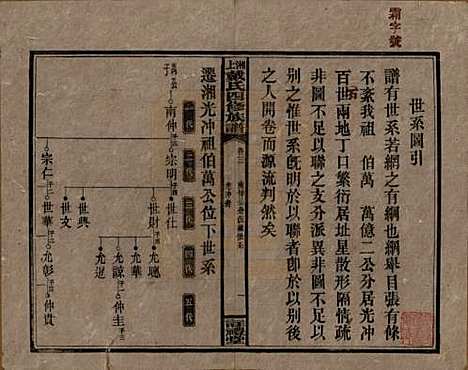 霸字號
世系圖引
譜有世系若網之有綱也綱舉目張有條
不紊我祖 伯萬 萬億二公分居光冲
百世兩地丁口繁衍居址星散形隔情疏
非圖不足以聯之支分派異非圖不足以
別之惟世系既明於以聯者卽於以別後
之人開卷而源流判然矣
湘上戴氏四修族譜
卷三
一
遷湘光冲祖伯萬公位下世系
一代
二代
三代
四代
五代
南仲
宗明
世仕
世財
允聰
允諒
仲圭
允華
允選
世興
世文
宗仁
世華
允彰
仲貴